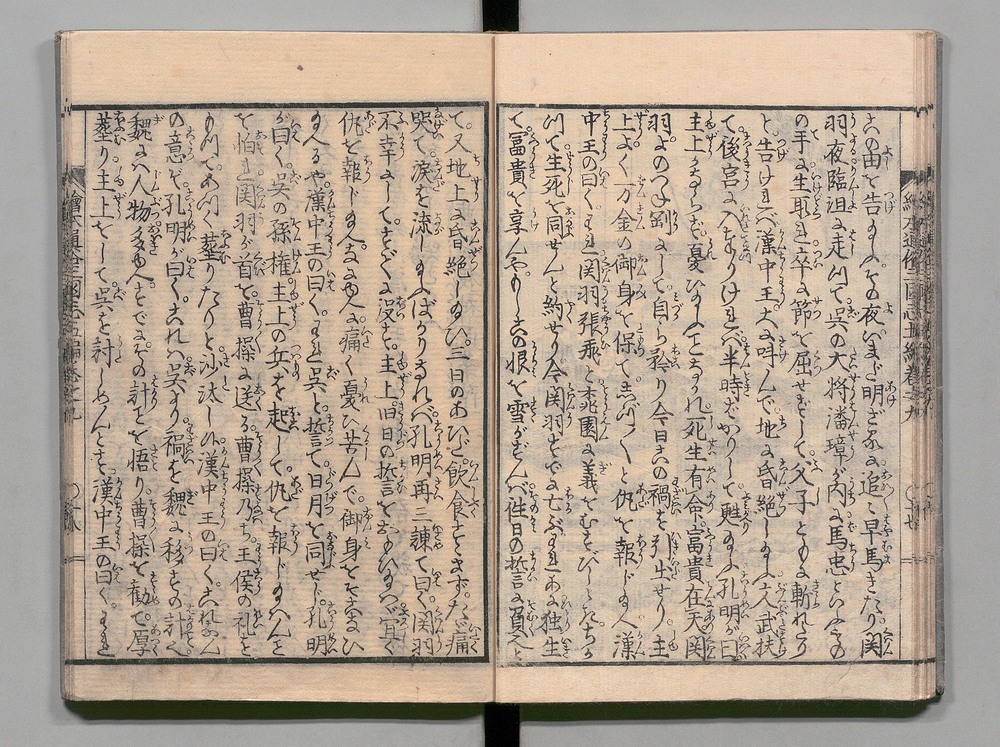 この由を告るに。その夜いまだ明ざるに追々早馬きたり。関
羽。夜臨沮に走りて。呉の大将潘璋が内の馬忠といふもの
の手に生取れ。卒に節を屈せずして。父子ともに斬れたり
と。告けれバ。漢中王大に叫んで。地に昏絶したまふ。文武扶
て後宮に入たりけれバ。半時ばかりして甦たまふ。孔明が曰
主上さのミな憂ひたまひそ。死生有命。富貴在天。関
羽つねに剛にして。自ら矜り。今日この禍を引出せり。主
上よく万金の御身を保て。しづかに仇を報じたまへ。漢
中王の曰く。われ関羽張飛と。桃園に義をむすびしときち
かつて生死を同せんと約せり。今関羽すでに亡ぶ。われあに独生
て。富貴を享んや。もしこの恨を雪がずんバ。往日の誓に負んと
て。又地上に昏絶したまひ。三日のあひだ。飲食をとゞめ。たゞ痛
哭て。涙を流したまふばかりなれバ。孔明再三諫て曰く。関羽
不幸にして。すでに没す。主上旧日の誓を思ひたまハゞ。宜く
仇を報じたまへ。さのミ痛く憂ひ苦んで。御身を害ひ
たまふや。漢中王の曰く。われ呉と誓て。日月を同せじ。孔明
が曰く。呉の孫権主上の兵を起して。仇を報じたまハんを
を怕れ。関羽が首を曹操に送る。曹操乃ち。王侯の礼を
もつてあつく葬りたりと沙汰しぬ。漢中王の曰く。これなん
の意ぞ。孔明が曰く。これハ呉より禍を魏に移すの計。
魏にハ人物多ゆへ。すでにその計を悟り。曹操を勧て。厚く
葬り。主上をして呉を討しめんとす。漢中王の曰く。われ